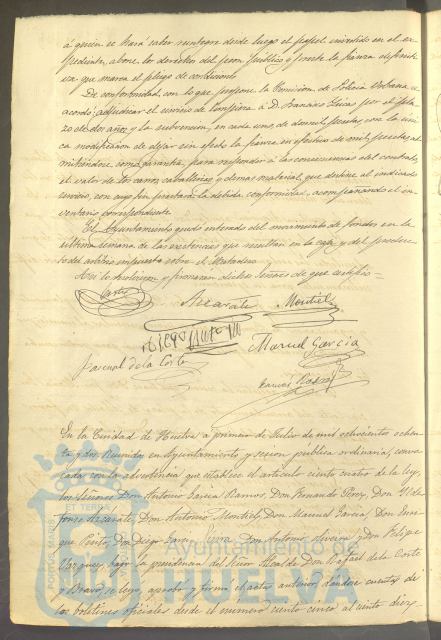 á quien se hará saber reintegre desde luego el papel invertido en el ex-
pediente, abone los derechos del peon público y preste la fianza definiti-
va que marca el pliego de condiciones
De conformidad con lo que propone la Comision de Policia Urbana se
acordó: adjudicar el servicio de limpieza á D. por el pla-
zo de dos años y la subvencion, en cada uno, de dos mil pesetas, con la úni-
ca modificacion de dejar sin efecto la fianza en efectivo de mil pesetas ad-
mitiendose como garantia, para responder á las consecuencias del contrato,
el valor de los carros, caballerias y demas material, que destine al indicado
servicio, con cuyo fin prestará la debida conformidad, acompañando el in-
ventario correspondiente
El Ayuntamiento quedó enterado del movimiento de fondos en la
última semana de las existencias que resultan en la caja y del produc-
to del arbitrio impuesto sobre el Matadero
Asi lo hicieron y firmarán dichos Señores de que certifico =
Corte
Azcarate
Montiel
Diego
Manuel Garcia
Pascual de la Corte
En la Ciudad de Huelva á primero de Julio de mil ochocientos ochen-
ta y dos. Reunidos en Ayuntamiento y sesion pública ordinaria, convo-
cada con la advertencia que establece el articulo ciento cuatro de la ley,
los Señores Don Antonio Garcia Ramos, Don Fernando Perez, Don Ilde-
fonso Azcárate, Don Antonio Montiel, Don Manuel Garcia, Don Enri-
que Pinto, Don Diego Garcia, Don Antonio Oliveira y Don Felipe
Vazquez, bajo la presidencia del Señor Alcalde Don Rafael de la Corte
y Bravo, se leyó, aprobó y firmó el acta anterior, dandose cuenta de
los boletines oficiales desde el numero ciento cinco al ciento diez,
ET TERRAE
PORTUS MARIS
CUSTODIA
Ayuntamiento de
HUELVA